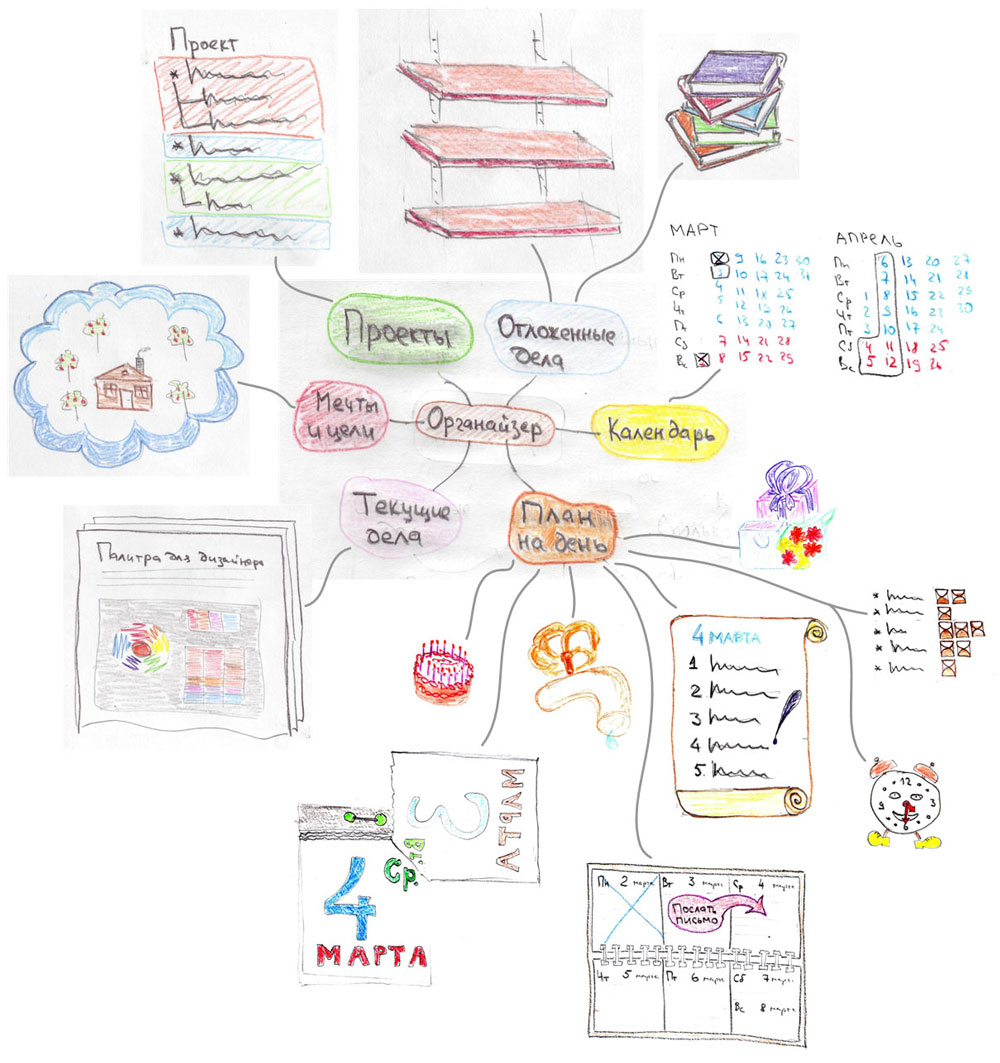 Проект
МАРТ
Пн 9 16 23 30
Вт 3 10 17 24 31
Ср 4 11 18 25
Чт 5 12 19 26
Пт 6 13 20 27
Сб 7 14 21 28
Вс 8 15 22 29
АПРЕЛЬ
Пн 6 13 20 27
Вт 7 14 21 28
Ср 1 8 15 22 29
Чт 2 9 16 23 30
Пт 3 10 17 24
Сб 4 11 18 25
Вс 5 12 19 26
Проекты
Отложенные
дела
Мечты
и цели
Органайзер
Календарь
Текущие
дела
План
на день
Палитра для дизайнера
4 МАРТА
1
2
3
4
5.
12
9 3
6
3
МАРТА
Вт.
Ср.
4
МАРТА
Пн 2 марта Вт 3 марта Ср 4 марта
Послать
письмо
Чт 5 марта Пт 6 марта Сб 7 марта
Вс 8 марта